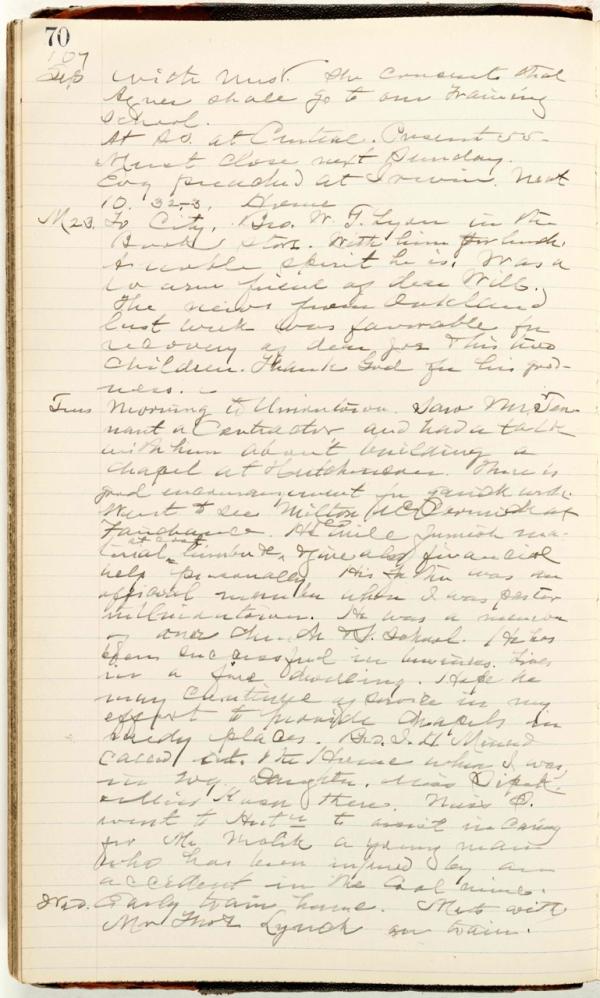 70
with Mrs. She consents that
Agnes shall go to our Training
School.
At S.S. at Central. Present 55.
Must close next Sunday.
Evg preached at Irwin. Next
10. 32-3. Home
M 23. To City. Bro. W. F. Lyon in the
Book Store. With him for lunch.
A noble spirit he is. Was a
warm friend of dear Will.
The news from Oakland
last week was favorable for
recovery of dear Joe & his two
children. Thank God for his good-
ness.
Tues Morning to Uniontown. Saw Mr. Ten
nant a Contractor and had a talk
with him about building a
chapel at Hutchinson. There is
good encouragement for work.
Went to see Milton at
Fairchance. He will furnish ma-
terial, at cost lumber &c, & give also financial
help personally. His Father was an
official member when I was pastor
in Uniontown. He was a member
of our Church & S. School. He has
been successful in business. Lives
in a fine dwelling. Hope he
may continue of service in my
effort to provide chapels in
needy places. Bro. I. H. Minerd
called at the Home when I was
in with Daughter. Miss
& Miss there. Miss
went to to assist in caring
for Mr. Malik a young man
who has been injured by an
accident in the Coal mine.
Wed. Early train home. Met with
Mr Thos Lynch on train.